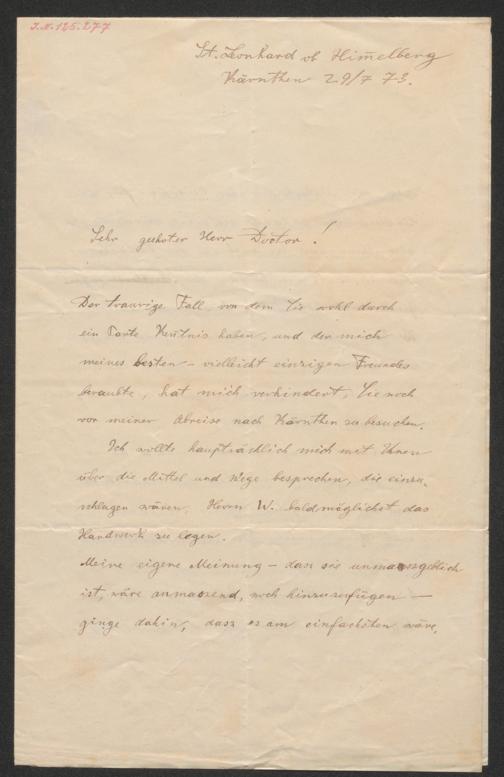 J.N. 125.277
St. Leonhard ob Himelberg
Kärnthen 29/7 73.
Sehr geehrter Herr Doctor!
Der traurige Fall, von dem Sie wohl durch
ein Parte Kentnis haben, und der mich
meines besten – vielleicht einzigen Freundes
beraubte, hat mich verhindert, Sie noch
vor meiner Abreise nach Kärnthen zu besuchen.
Ich wollte hauptsächlich mich mit Ihnen
über die Mittel und Wege besprechen, die einzu-
schlagen wären, Herrn W. baldmöglichst das
Handwerk zu legen.
Meine eigene Meinung – dass sie unmaassgeblich
ist, wäre anmassend, noch hinzuzufügen –
ginge dahin, dass es am einfachsten wäre,